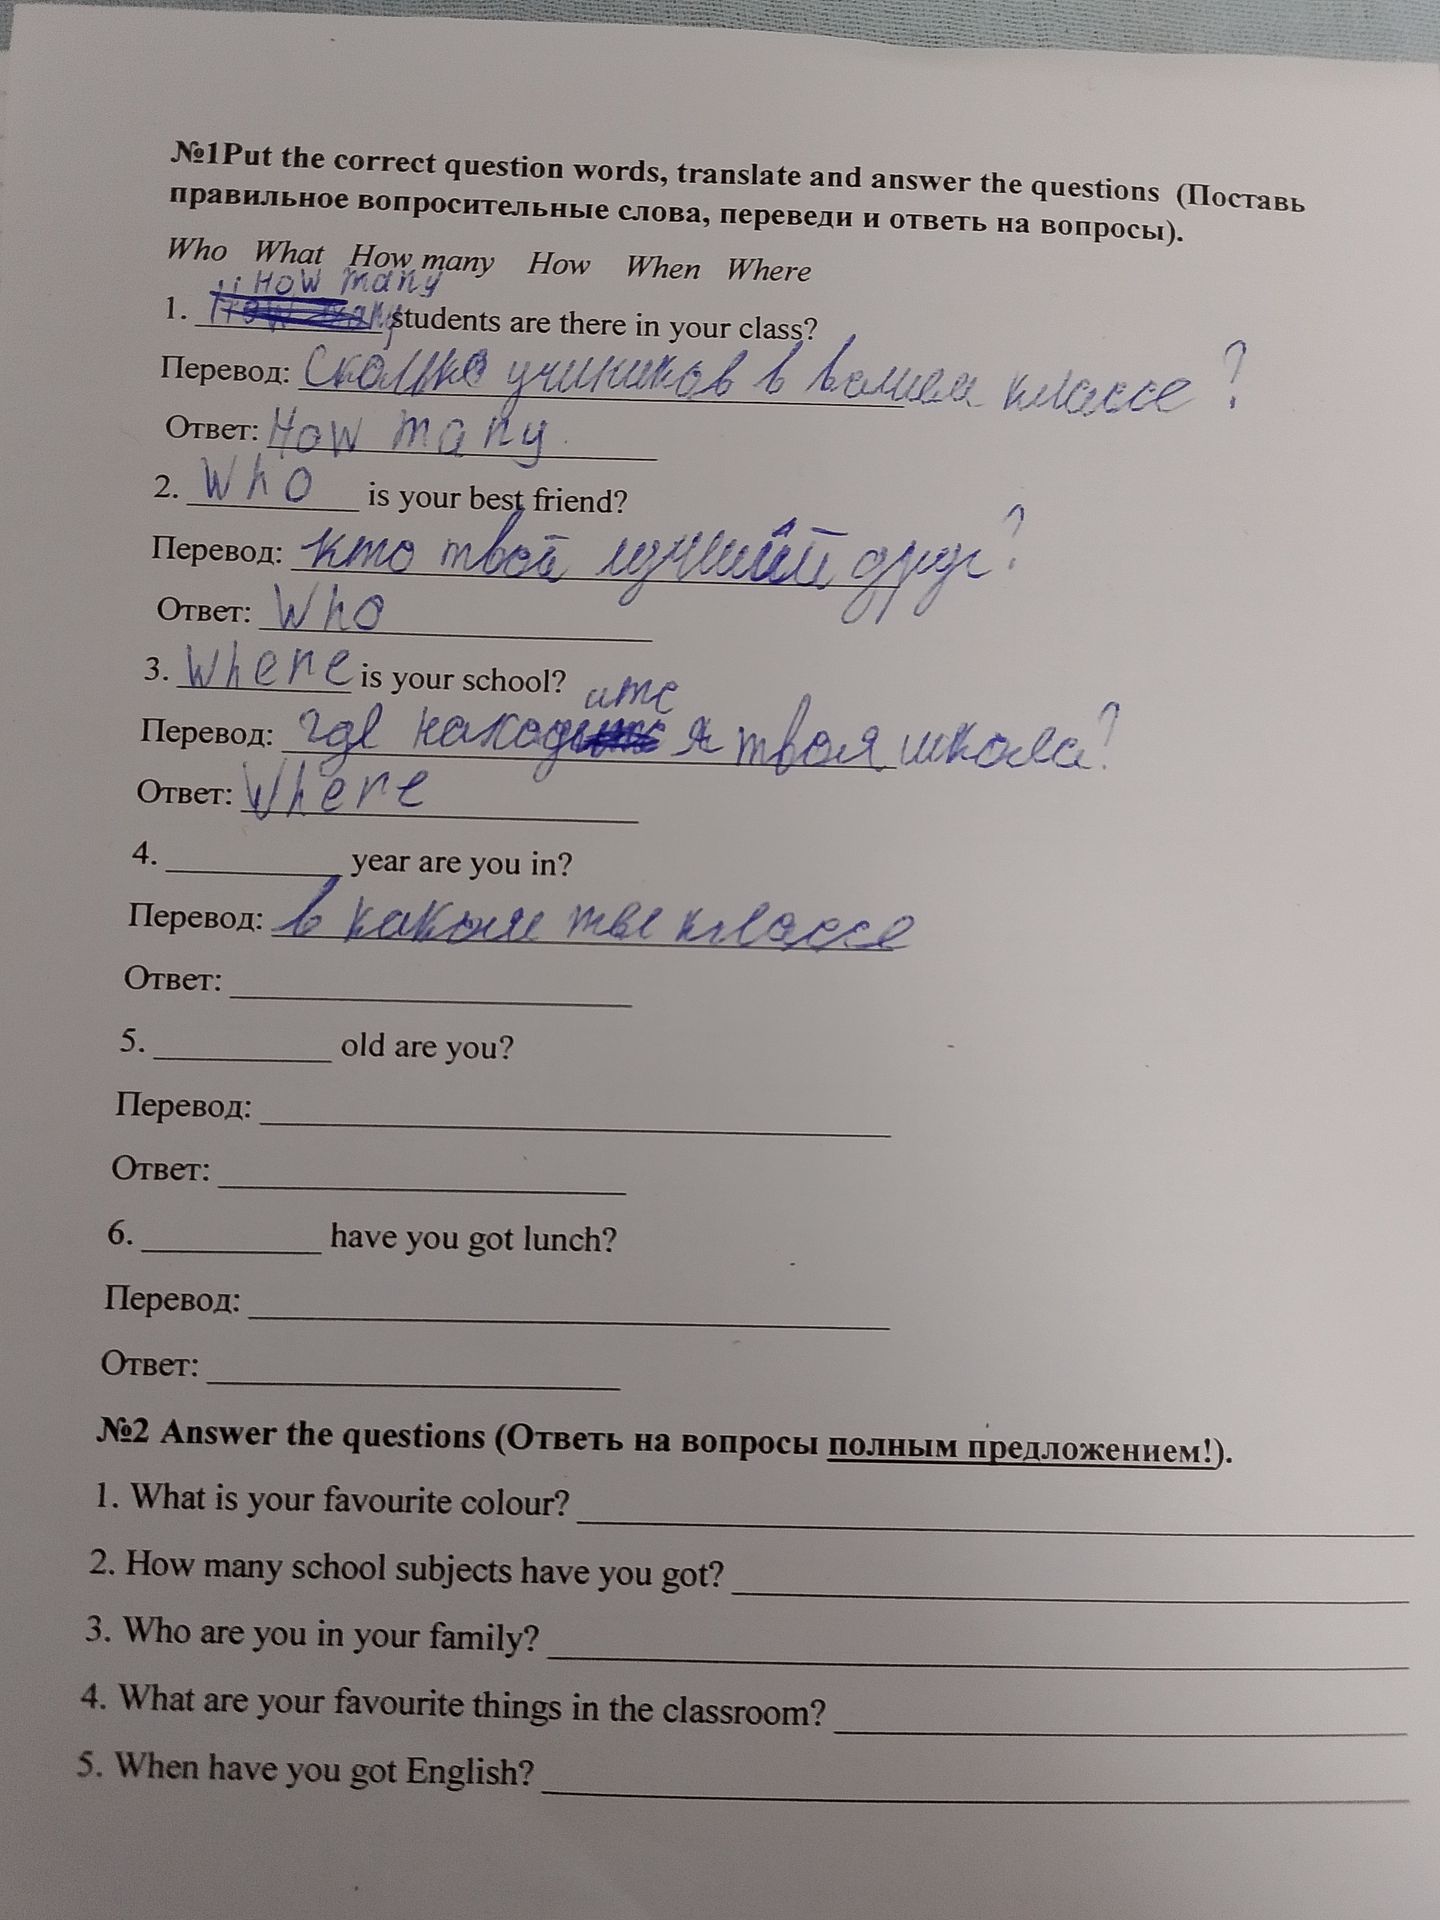 №1Put the correct question words, translate and answer the questions (Поставь
правильное вопросительные слова, переведи и ответь на вопросы).
Who What How many How When Where
How many
1. ___________ students are there in your class?
Перевод: Сколько учиников в вашем классе ?
Ответ: How many
2. Who is your best friend?
Перевод: кто твой лучший друг ?
Ответ: Who
3. Where is your school?
ите
Перевод: где находя твоя школа?
Ответ: Where
4. ___________ year are you in?
Перевод: в каком ты классе
Ответ: ___________
5. ___________ old are you?
Перевод: ___________
Ответ: ___________
6. ___________ have you got lunch?
Перевод: ___________
Ответ: ___________
№2 Answer the questions (Ответь на вопросы полным предложением!).
1. What is your favourite colour? ___________
2. How many school subjects have you got? ___________
3. Who are you in your family? ___________
4. What are your favourite things in the classroom? ___________
5. When have you got English? ___________